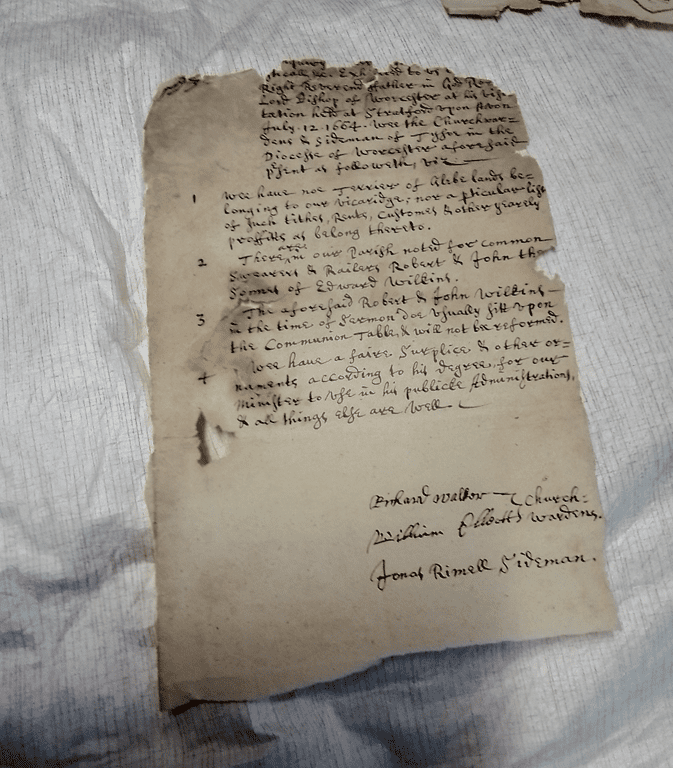 Exhibited to ys
Right Reverend father in God
Lord Bishop of Worcester at his visi-
tation held at Stratford upon Avon
July. 12. 1664. Wee the Churchwar-
dens & Sideman of Tysoe in the
Diocesse of Worcester aforesaid
psent as followeth, viz
1 Wee have noe Terrier of Glebe lands be-
longing to our vicaridge; nor a pticular list
of such tithes, Rents, Customes & other yearly
proffitts as belong thereto.
2 There are in our Parish noted for common
Swearers & Railers Robert & John the
Sonnes of Edward Wilkins.
3 The aforesaid Robert & John Wilkins
in the time of Sermon doe usually sitt upon
the Communion Table, & will not be reformed.
4 Wee have a faire Surplice & other or=
naments according to his degree, for our
Minister to use in his publicke Administrations,
& all things else are well.
Richard Walker Church=
William Wardens.
Jonas Rimell Sideman.